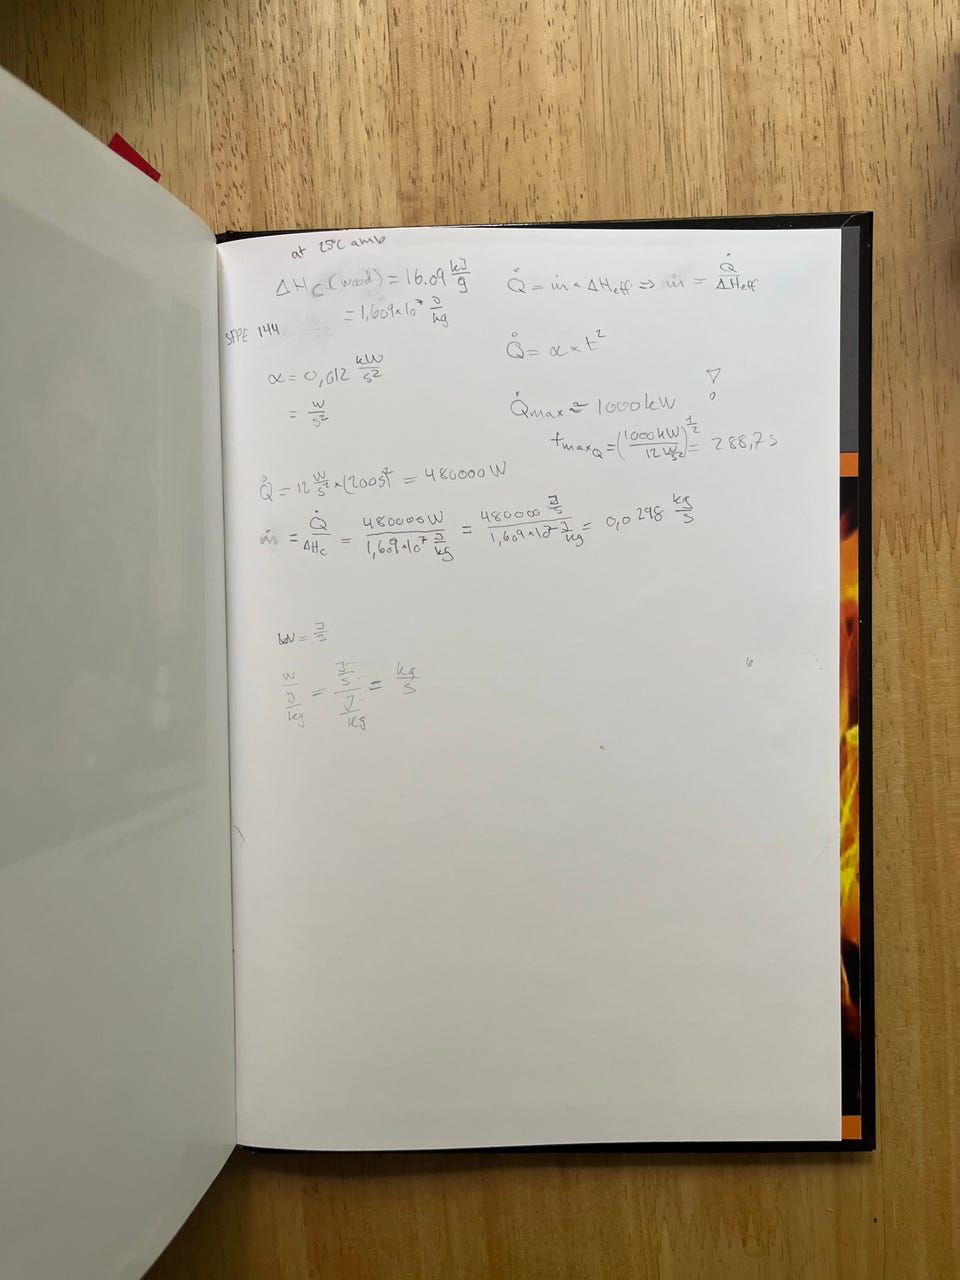 at 25°C amb
ΔHc (wood) = 16.09 kJ/g
= 1,609×10⁷ J/kg
SFPE 144
α = 0,012 kW/s²
= W/s²
Q̇ = ṁ × ΔHeff ⇒ ṁ = Q̇/ΔHeff
Q̇ = α × t²
Q̇max ≈ 1000kW
tmaxQ = (1000kW/12 W/s²)^1/2 = 288,7s
Q̇ = 12 W/s² × (200s)² = 480000W
ṁ = Q̇/ΔHc = 480000W/1,609×10⁷ J/kg = 480000 J/s/1,609×10⁷ J/kg = 0,0298 kg/s
W = J/s
W/J/kg = J/s/J/kg = kg/s